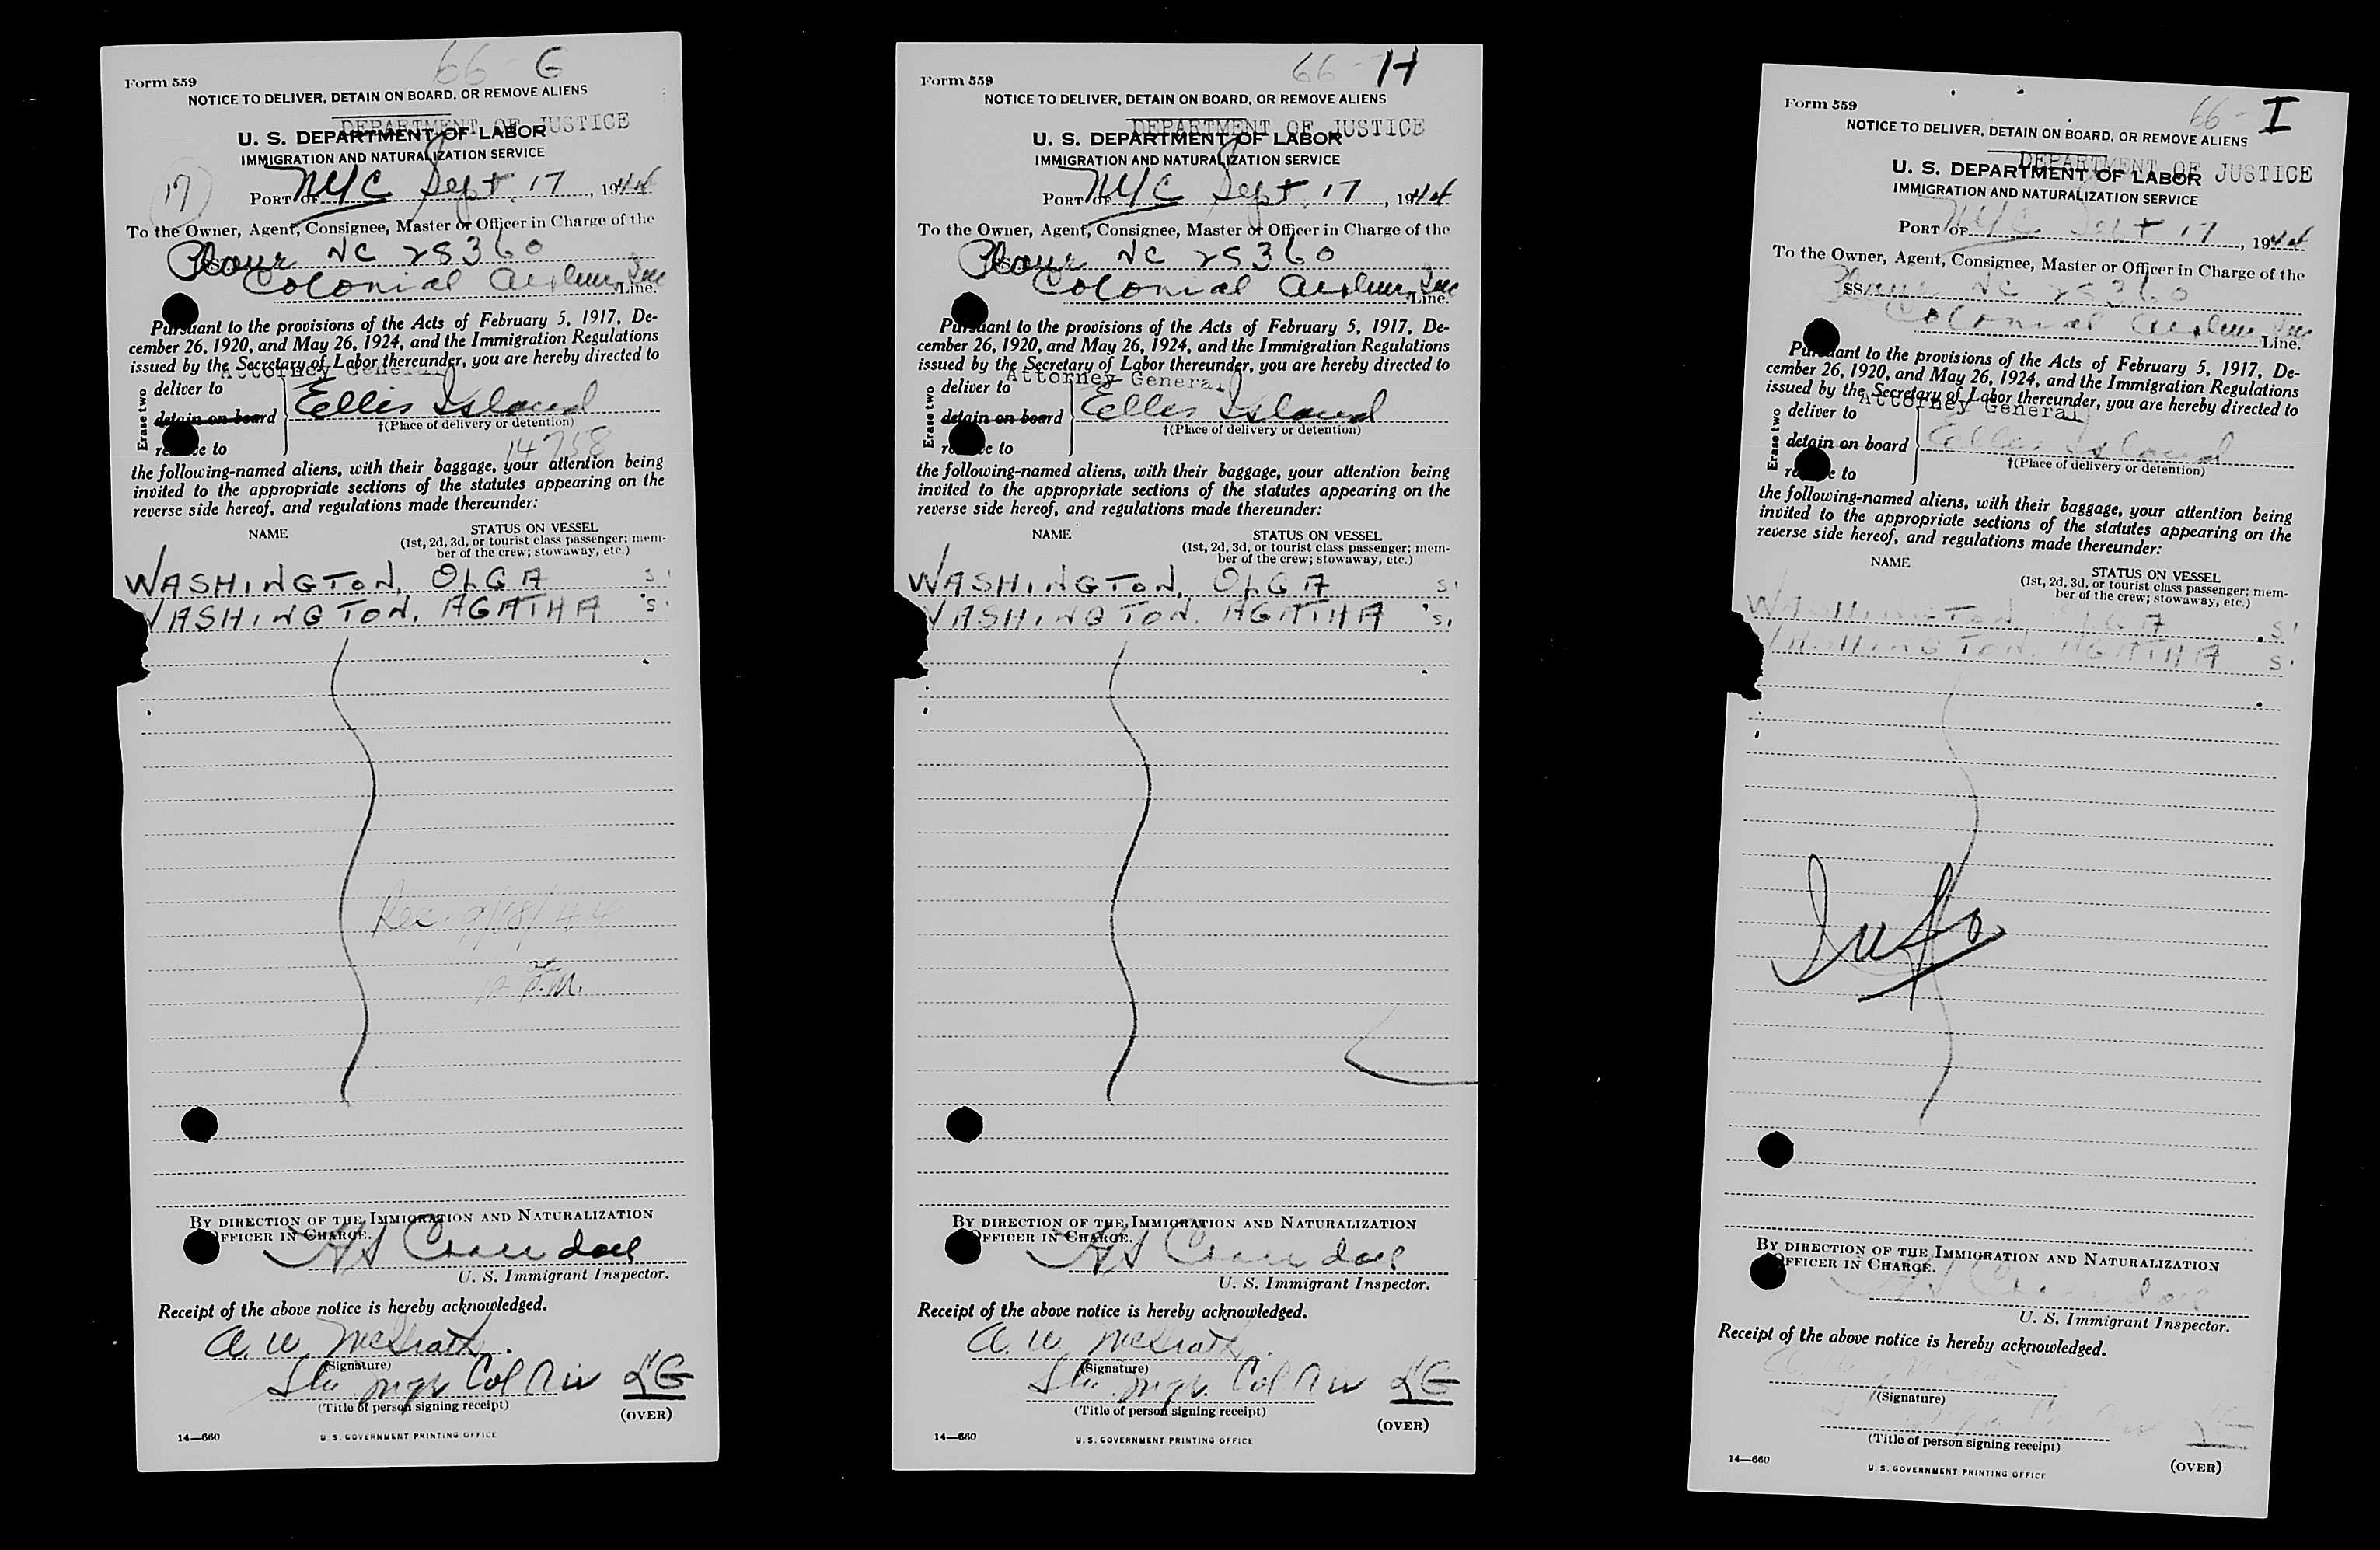 66 G
Form 559
NOTICE TO DELIVER, DETAIN ON BOARD, OR REMOVE ALIENS
DEPARTMENT OF JUSTICE
U. S. DEPARTMENT OF LABOR
IMMIGRATION AND NATURALIZATION SERVICE
17
PORT OF NYC Sept. 17, 1944
To the Owner, Agent, Consignee, Master or Officer in Charge of the
Plane NC 25360
Colonial Airlines, Inc Line.
Pursuant to the provisions of the Acts of February 5, 1917, De-
cember 26, 1920, and May 26, 1924, and the Immigration Regulations
issued by the Secretary of Labor thereunder, you are hereby directed to
Attorney General
Erase two
deliver to
detain on board
remove to
Ellis Island
†(Place of delivery or detention)
14758
the following-named aliens, with their baggage, your attention being
invited to the appropriate sections of the statutes appearing on the
reverse side hereof, and regulations made thereunder:
NAME
STATUS ON VESSEL
(1st, 2d, 3d, or tourist class passenger; mem-
ber of the crew; stowaway, etc.)
WASHINGTON, OLGA S
WASHINGTON, AGATHA S
Rec. 9/18/44
12 P.M.
BY DIRECTION OF THE IMMIGRATION AND NATURALIZATION
OFFICER IN CHARGE.
U. S. Immigrant Inspector.
Receipt of the above notice is hereby acknowledged.
A. W. McGrath
(Signature)
Mgr Col Air LG
(Title of person signing receipt)
(OVER)
14—660
U. S. GOVERNMENT PRINTING OFFICE
66 - H
Form 559
NOTICE TO DELIVER, DETAIN ON BOARD, OR REMOVE ALIENS
DEPARTMENT OF JUSTICE
U. S. DEPARTMENT OF LABOR
IMMIGRATION AND NATURALIZATION SERVICE
PORT OF NYC Sept. 17, 1944
To the Owner, Agent, Consignee, Master or Officer in Charge of the
Plane NC 25360
Colonial Airlines, Inc Line.
Pursuant to the provisions of the Acts of February 5, 1917, De-
cember 26, 1920, and May 26, 1924, and the Immigration Regulations
issued by the Secretary of Labor thereunder, you are hereby directed to
Attorney General
Erase two
deliver to
detain on board
remove to
Ellis Island
†(Place of delivery or detention)
the following-named aliens, with their baggage, your attention being
invited to the appropriate sections of the statutes appearing on the
reverse side hereof, and regulations made thereunder:
NAME
STATUS ON VESSEL
(1st, 2d, 3d, or tourist class passenger; mem-
ber of the crew; stowaway, etc.)
WASHINGTON, OLGA S
WASHINGTON, AGATHA S
BY DIRECTION OF THE IMMIGRATION AND NATURALIZATION
OFFICER IN CHARGE.
U. S. Immigrant Inspector.
Receipt of the above notice is hereby acknowledged.
A. W. McGrath
(Signature)
Mgr. Col Air LG
(Title of person signing receipt)
(OVER)
14—660
U. S. GOVERNMENT PRINTING OFFICE
66 - I
Form 559
NOTICE TO DELIVER, DETAIN ON BOARD, OR REMOVE ALIENS
DEPARTMENT OF JUSTICE
U. S. DEPARTMENT OF LABOR
IMMIGRATION AND NATURALIZATION SERVICE
PORT OF NYC Sept 17, 1944
To the Owner, Agent, Consignee, Master or Officer in Charge of the
SS Plane NC 25360
Colonial Airlines, Inc Line.
Pursuant to the provisions of the Acts of February 5, 1917, De-
cember 26, 1920, and May 26, 1924, and the Immigration Regulations
issued by the Secretary of Labor thereunder, you are hereby directed to
Attorney General
Erase two
deliver to
detain on board
remove to
Ellis Island
†(Place of delivery or detention)
the following-named aliens, with their baggage, your attention being
invited to the appropriate sections of the statutes appearing on the
reverse side hereof, and regulations made thereunder:
NAME
STATUS ON VESSEL
(1st, 2d, 3d, or tourist class passenger; mem-
ber of the crew; stowaway, etc.)
WASHINGTON, OLGA S
WASHINGTON, AGATHA S
Info
BY DIRECTION OF THE IMMIGRATION AND NATURALIZATION
OFFICER IN CHARGE.
U. S. Immigrant Inspector.
Receipt of the above notice is hereby acknowledged.
(Signature)
(Title of person signing receipt)
(OVER)
14—660
U. S. GOVERNMENT PRINTING OFFICE